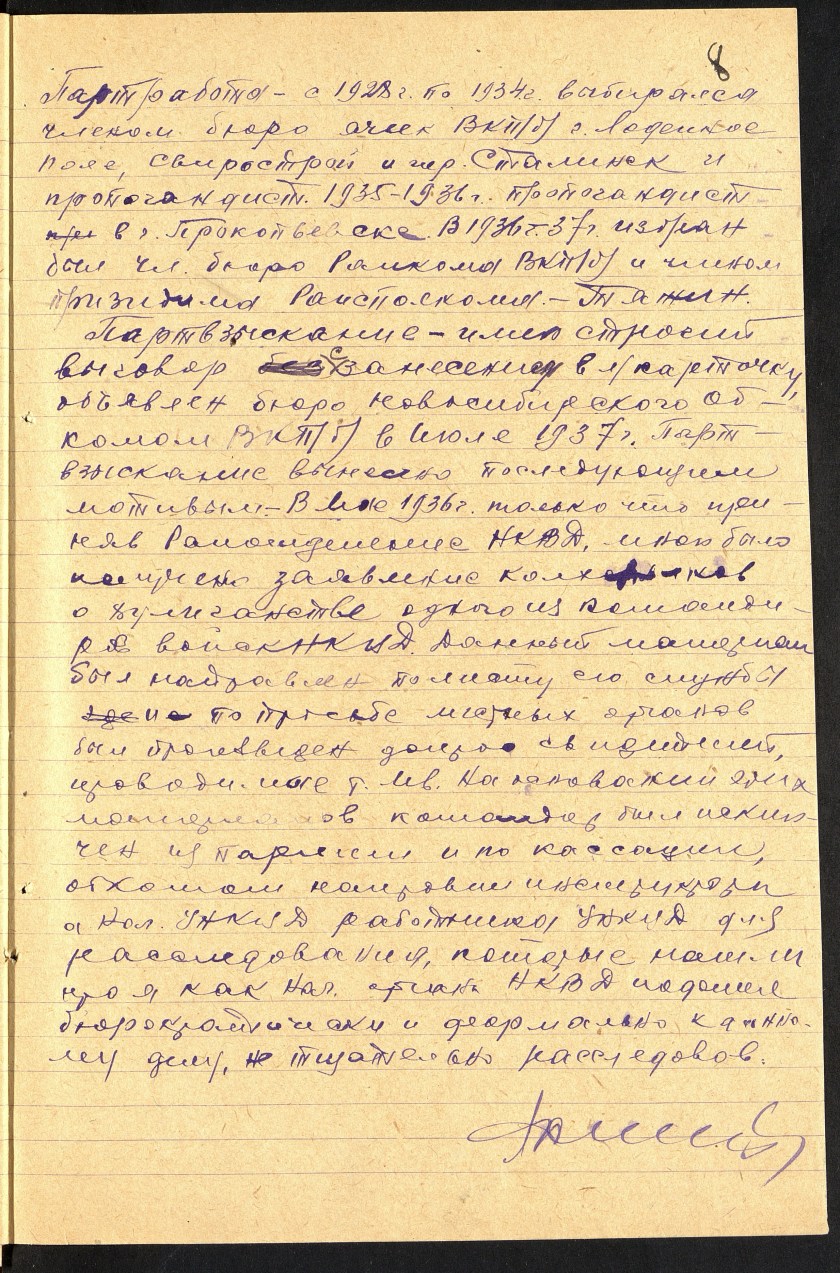 8
Партработа – с 1928 г. по 1934 г. выбирался
членом бюро ячеек ВКП/б/ г. Лодейное
поле, Свирострой и гор. Сталинск и
пропогандист. 1935-1936 г. пропогандист
в г. Прокопьевске. В 1936 г.-37 г. избран
был чл. бюро Райкома ВКП/б/ и членом
призидима Раисполкома. –
Партвзыскание – имею строгий
выговор без с занесением в л/карточку,
объявлен бюро Новосибирского Об-
комом ВКП/б/ в Июле 1937 г. Парт-
взыскание вынесено последующим
мотивым – В Мае 1936 г. только что при-
няв Райотделение НКВД, мною было
получено заявление колхозников
о хулиганстве одного из команди-
ров войск НКВД. Данный материал
был направлен по месту его службы
по просьбе местных органов
был произведен допрос свидетелей,
проводимые т. Ив. На основании этих
материалов командир был исклю-
чен из партии и по кассации,
обкомом направили инструктора
а Нач. УНКВД работника УНКВД для
расследования, которые нашли
что я как нач. органа НКВД подошел
бюрократически и формально к данно-
му делу, не тщательно расследовов.